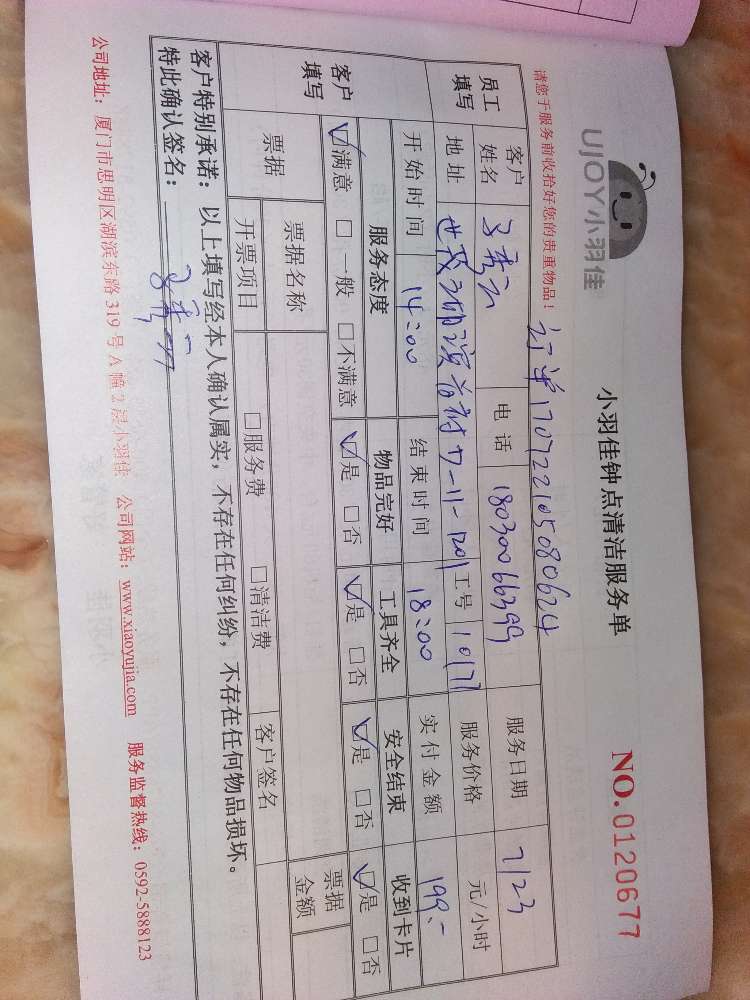 UJOY小羽佳
小羽佳钟点清洁服务单
NO.0120677
请您于服务前收拾好您的贵重物品！
订单170722105080624
员工填写 客户姓名 电话 18030066399 服务日期 7/23
地址 7-11-1201 工号 10177 服务价格 元/小时
开始时间 14:00 结束时间 18:00 实付金额 199.-
客户填写 服务态度 物品完好 工具齐全 安全结束 收到卡片
☑满意 □一般 □不满意 ☑是 □否 ☑是 □否 ☑是 □否 ☑是 □否
票据 票据名称 票据金额
开票项目 □服务费 □清洁费 客户签名
客户特别承诺：以上填写经本人确认属实，不存在任何纠纷，不存在任何物品损坏。
特此确认签名：
公司地址：厦门市思明区湖滨东路319号A幢2层小羽佳 公司网站：www.xiaoyujia.com 服务监督热线：0592-5888123